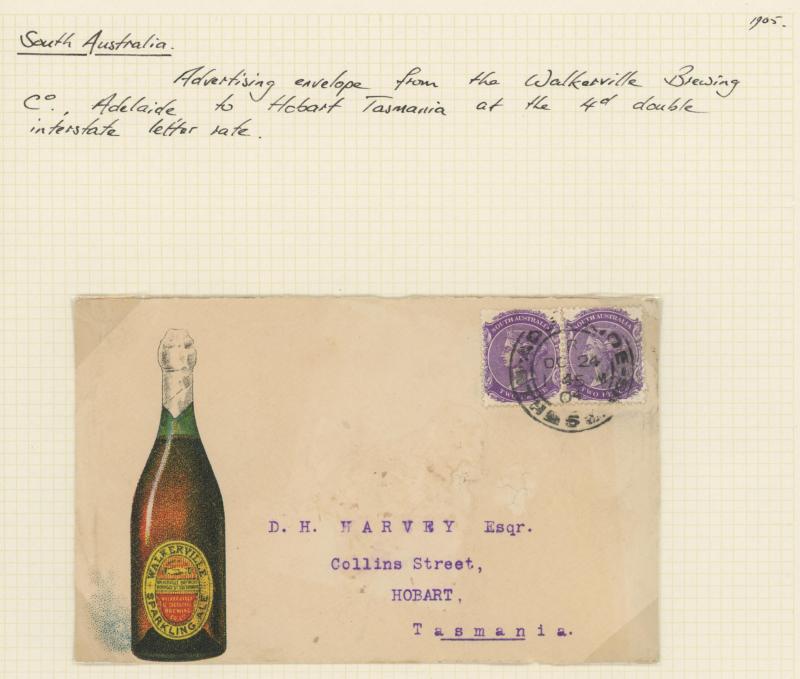 1905.
South Australia.
Advertising envelope from the Walkerville Brewing
Co., Adelaide to Hobart Tasmania at the 4d double
interstate letter rate.
SOUTH AUSTRALIA
TWO
SOUTH AUSTRALIA
TWO
OC 24
04
D. H. HARVEY Esqr.
Collins Street,
HOBART,
Tasmania.
WALKERVILLE
BREWING
SPARKLING ALE